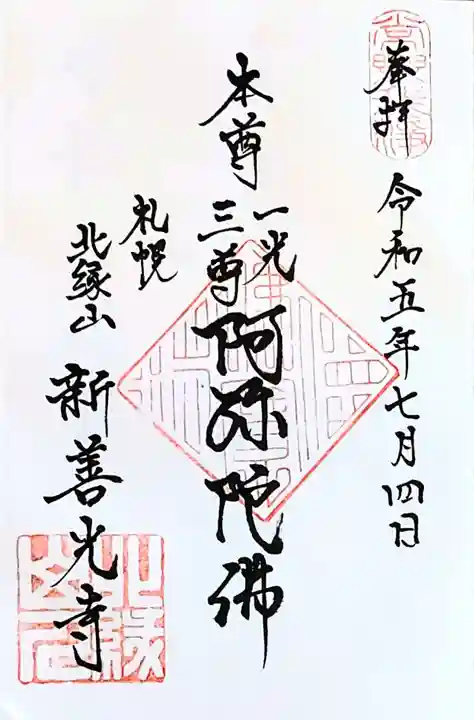 奉拝
令和五年七月四日
本尊
一光
三尊
阿弥陀佛
札幌
北縁山
新善光寺